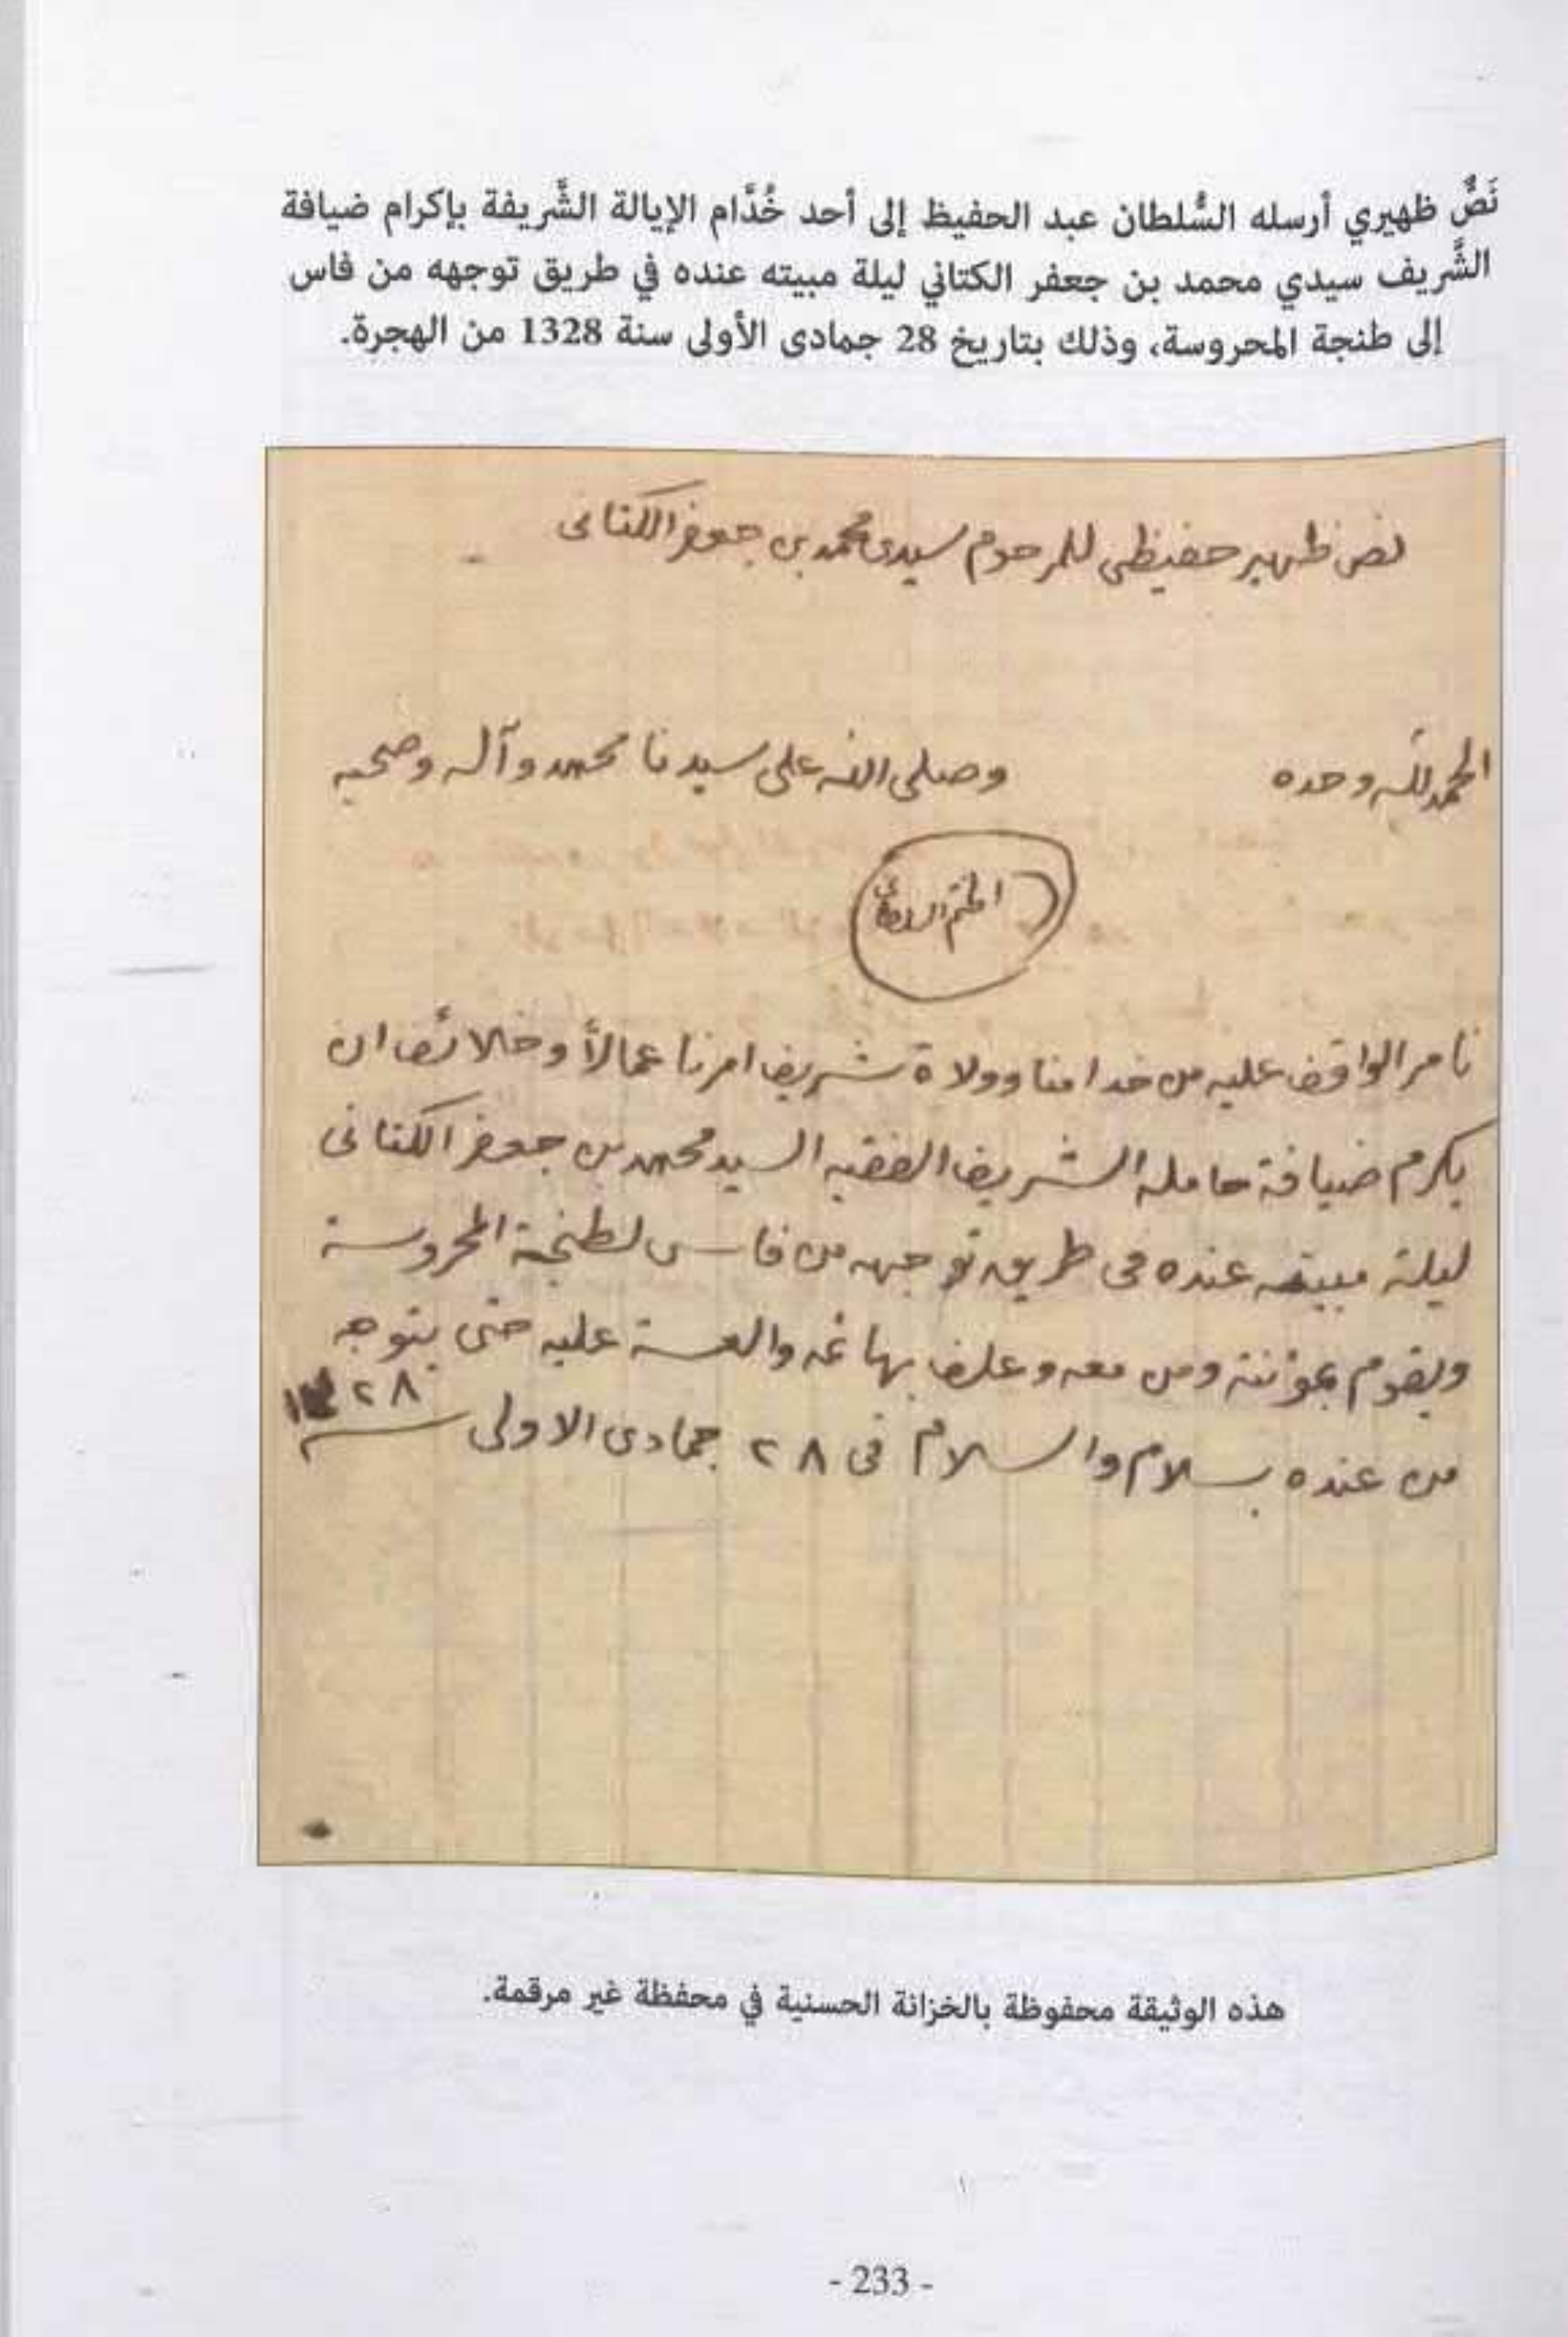 نَصٌّ ظهيري أرسله السُّلطان عبد الحفيظ إلى أحد خُدَّام الإيالة الشَّريفة بإكرام ضيافة
الشَّريف سيدي محمد بن جعفر الكتاني ليلة مبيته عنده في طريق توجهه من فاس
إلى طنجة المحروسة، وذلك بتاريخ 28 جمادى الأولى سنة 1328 من الهجرة.
نص ظهير حفيظي للمرحوم سيدي محمد بن جعفر الكتاني
الحمد لله وحده وصلى الله على سيدنا محمد وآله وصحبه
(الختم السلطاني)
نامر الواقف عليه من خدامنا وولاة شريف امرنا عمالاً وخلائف ان
يكرم ضيافة حامله الشريف الفقيه السيد محمد بن جعفر الكتاني
ليلة مبيته عنده في طريق توجهه من فاس لطنجة المحروسة
ويقوم بمؤنته ومن معه وعلف بهائمه والعسة عليه حتى يتوجه
من عنده بسلام والسلام في ٢٨ جمادى الاولى ١٣٢٨
هذه الوثيقة محفوظة بالخزانة الحسنية في محفظة غير مرقمة.
- 233 -